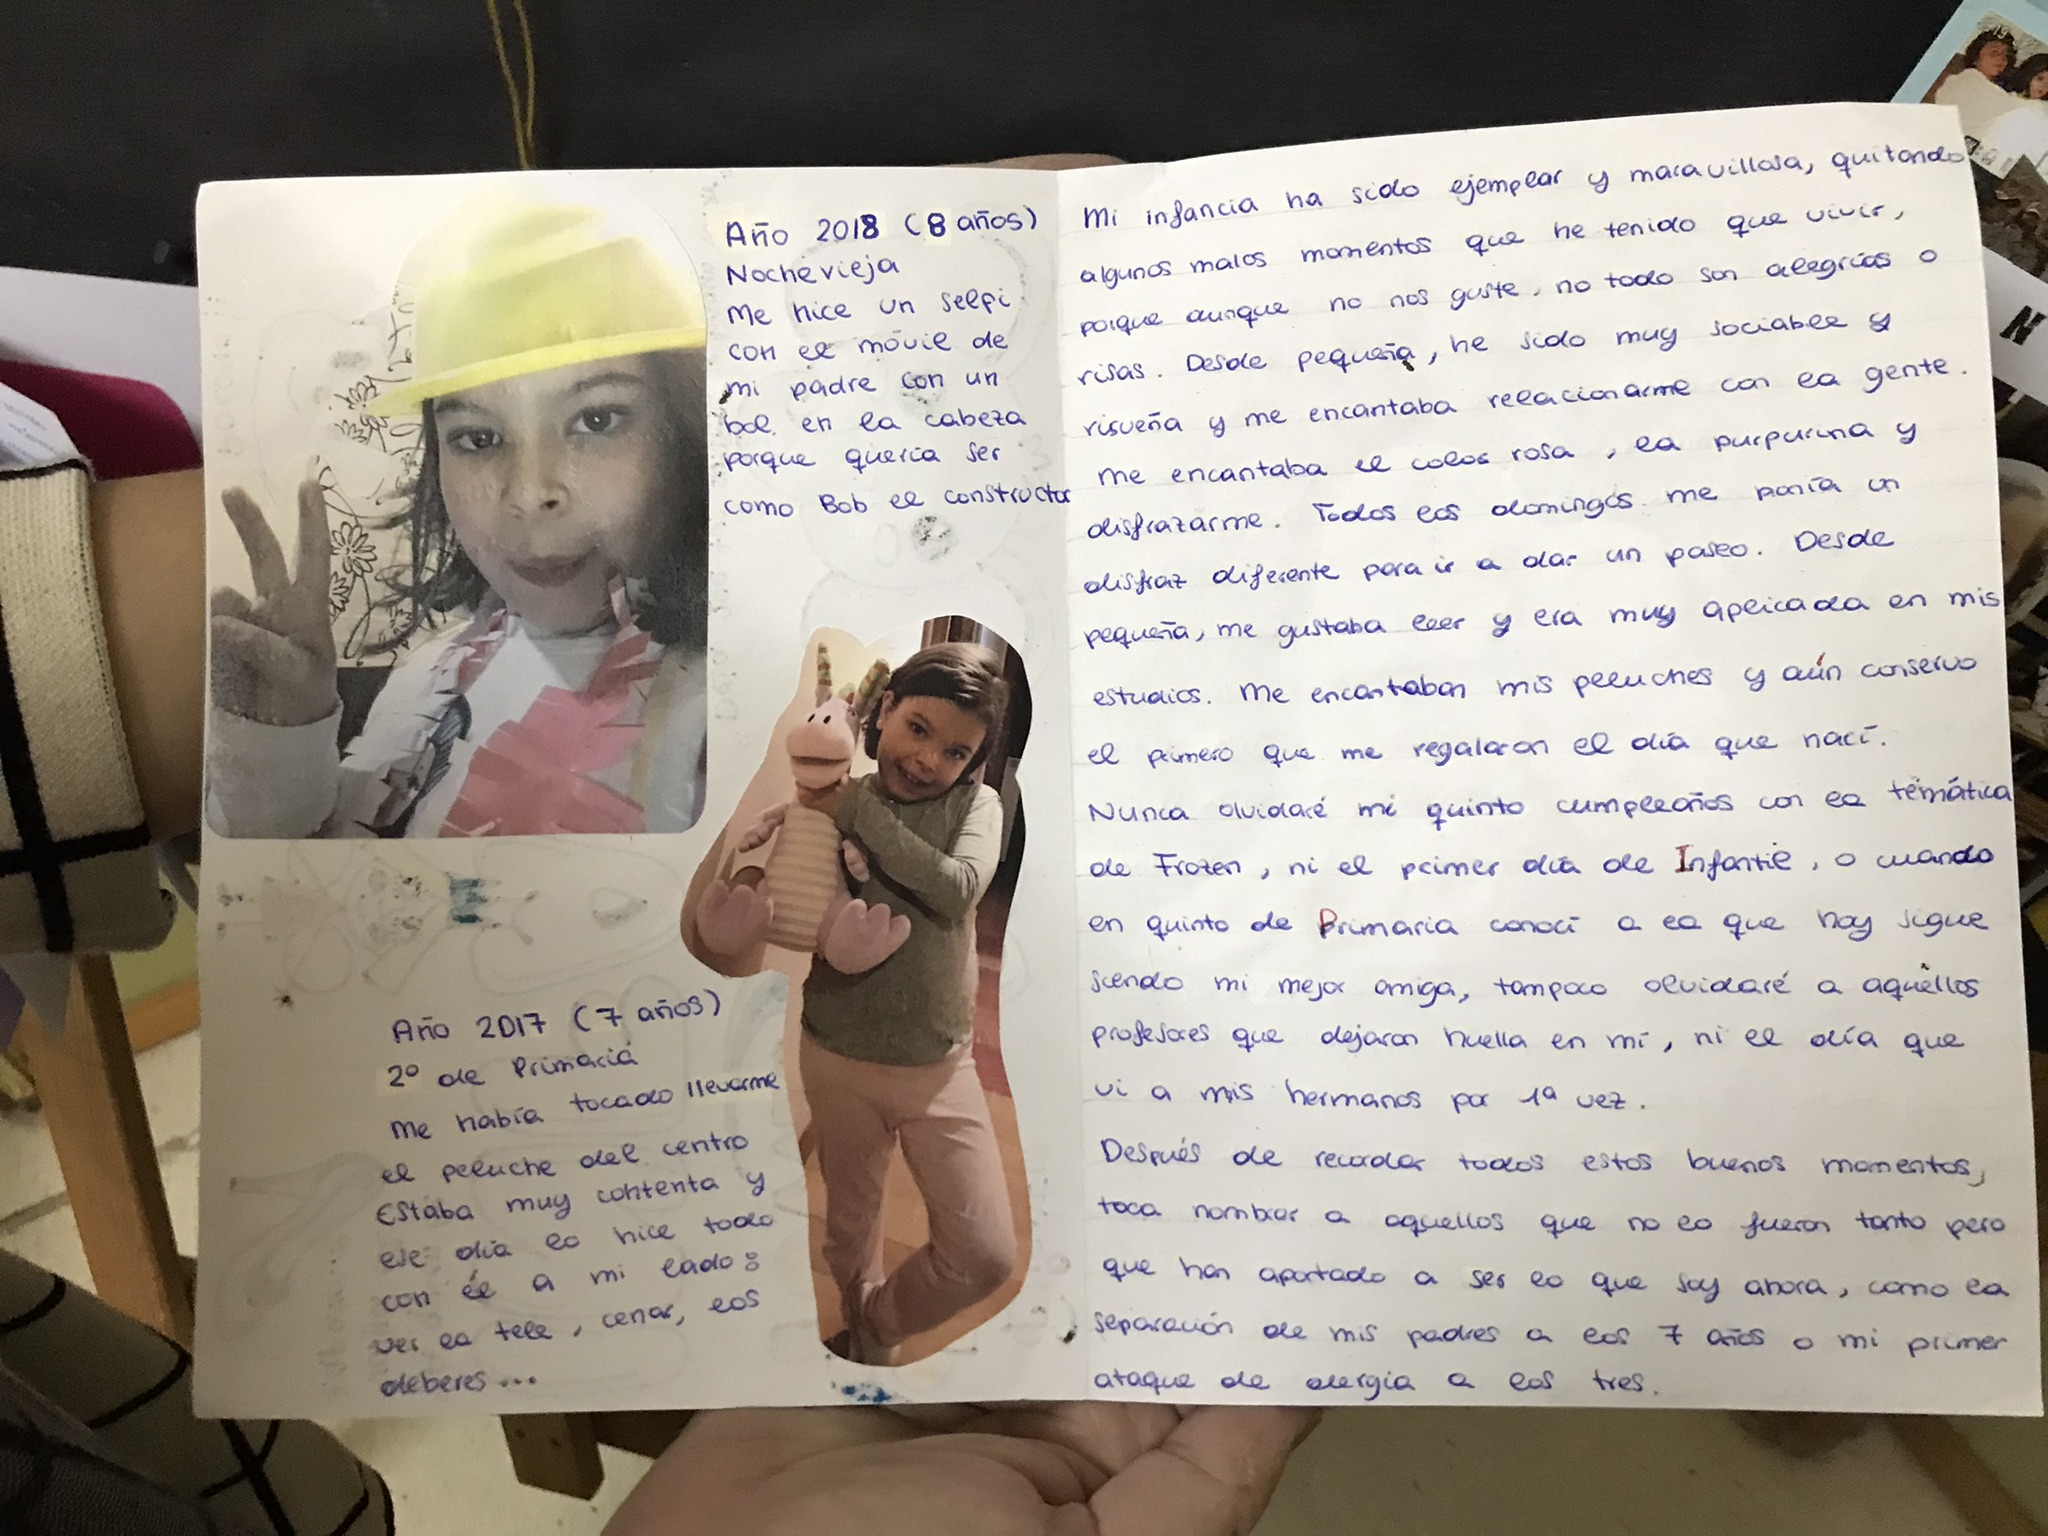 Año 2018 (8 años)
Nochevieja
Me hice un selpi
con el móvil de
mi padre con un
bol en la cabeza
porque quería ser
como Bob el constructor
Año 2017 (7 años)
2º de Primaria
Me había tocado llevarme
el peluche del centro
Estaba muy contenta y
ese día lo hice todo
con él a mi lado:
ver la tele, cenar, los
deberes...
Mi infancia ha sido ejemplar y maravillosa, quitando
algunos malos momentos que he tenido que vivir,
porque aunque no nos guste, no todo son alegrías o
risas. Desde pequeña, he sido muy sociable y
risueña y me encantaba relacionarme con la gente.
Me encantaba el color rosa, la purpurina y
disfrazarme. Todos los domingos me ponía un
disfraz diferente para ir a dar un paseo. Desde
pequeña, me gustaba leer y era muy aplicada en mis
estudios. Me encantaban mis peluches y aún conservo
el primero que me regalaron el día que nací.
Nunca olvidaré mi quinto cumpleaños con la temática
de Frozen, ni el primer día de Infantil, o cuando
en quinto de Primaria conocí a la que hoy sigue
siendo mi mejor amiga, tampoco olvidaré a aquellos
profesores que dejaron huella en mí, ni el día que
vi a mis hermanos por 1ª vez.
Después de recordar todos estos buenos momentos,
toca nombrar a aquellos que no lo fueron tanto pero
que han aportado a ser lo que soy ahora, como la
separación de mis padres a los 7 años o mi primer
ataque de alergia a los tres.
N